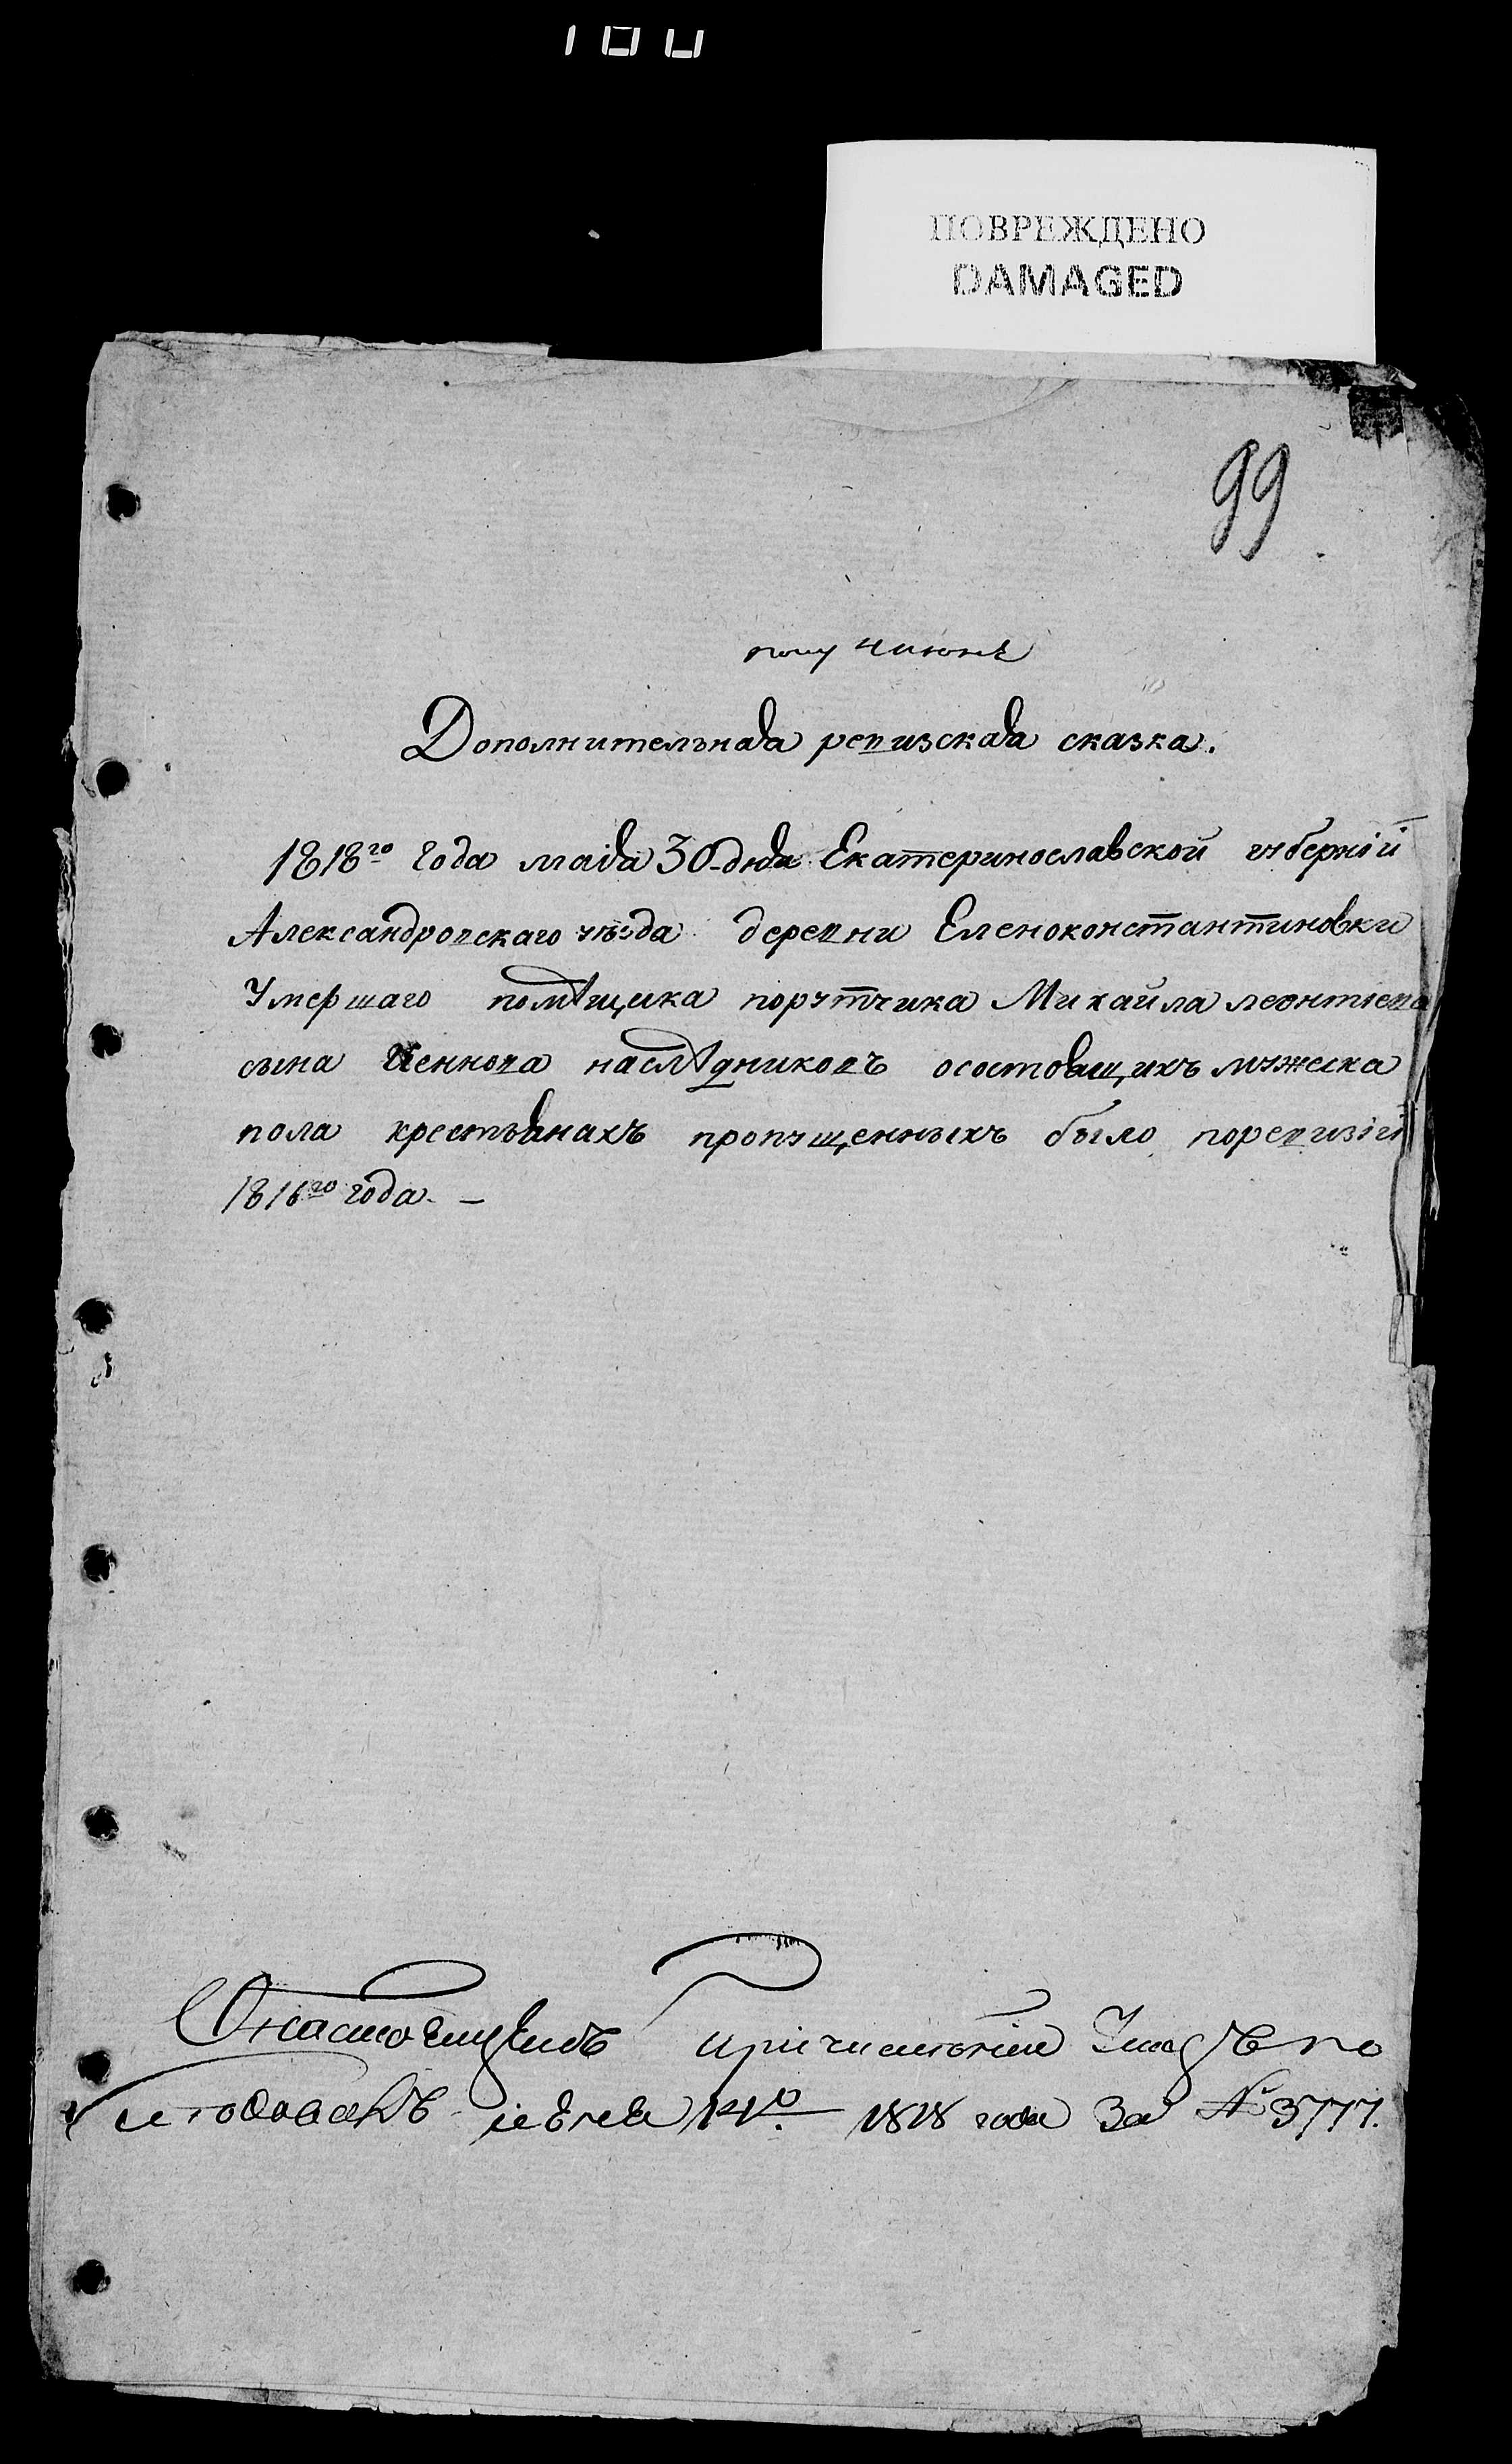 100
ПОВРЕЖДЕНО
DAMAGED
99
Дополнительная ревизская сказка.
1818го года маія 30 дня Екатеринославской губерніи
Александровскаго уѣзда деревни Еленоконстантиновки
Умершаго помѣщика порутчика Михайла леонтіева
сына наслѣдниковъ осостоящихъ мужеска
пола крестьянахъ пропущенныхъ было поревизіи
1816го года. —
Онастоящемъ причисленіи Указъ по
14го 1818 года За № 3777.